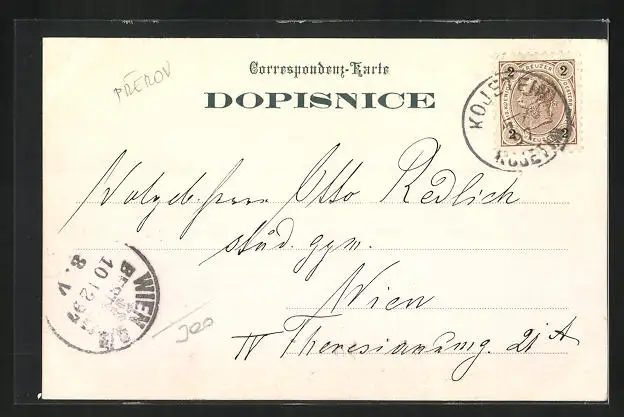 Correspondenz-Karte
DOPISNICE
PŘEROV
2 KREUZER 2
2 2
KOJETEIN
KOJETÍN
Wolgeb. Herrn Otto Redlich
stud. gym.
Wien
IV Theresianumg. 21 A
WIEN
BESTELLT
10 12 97
8. V
300